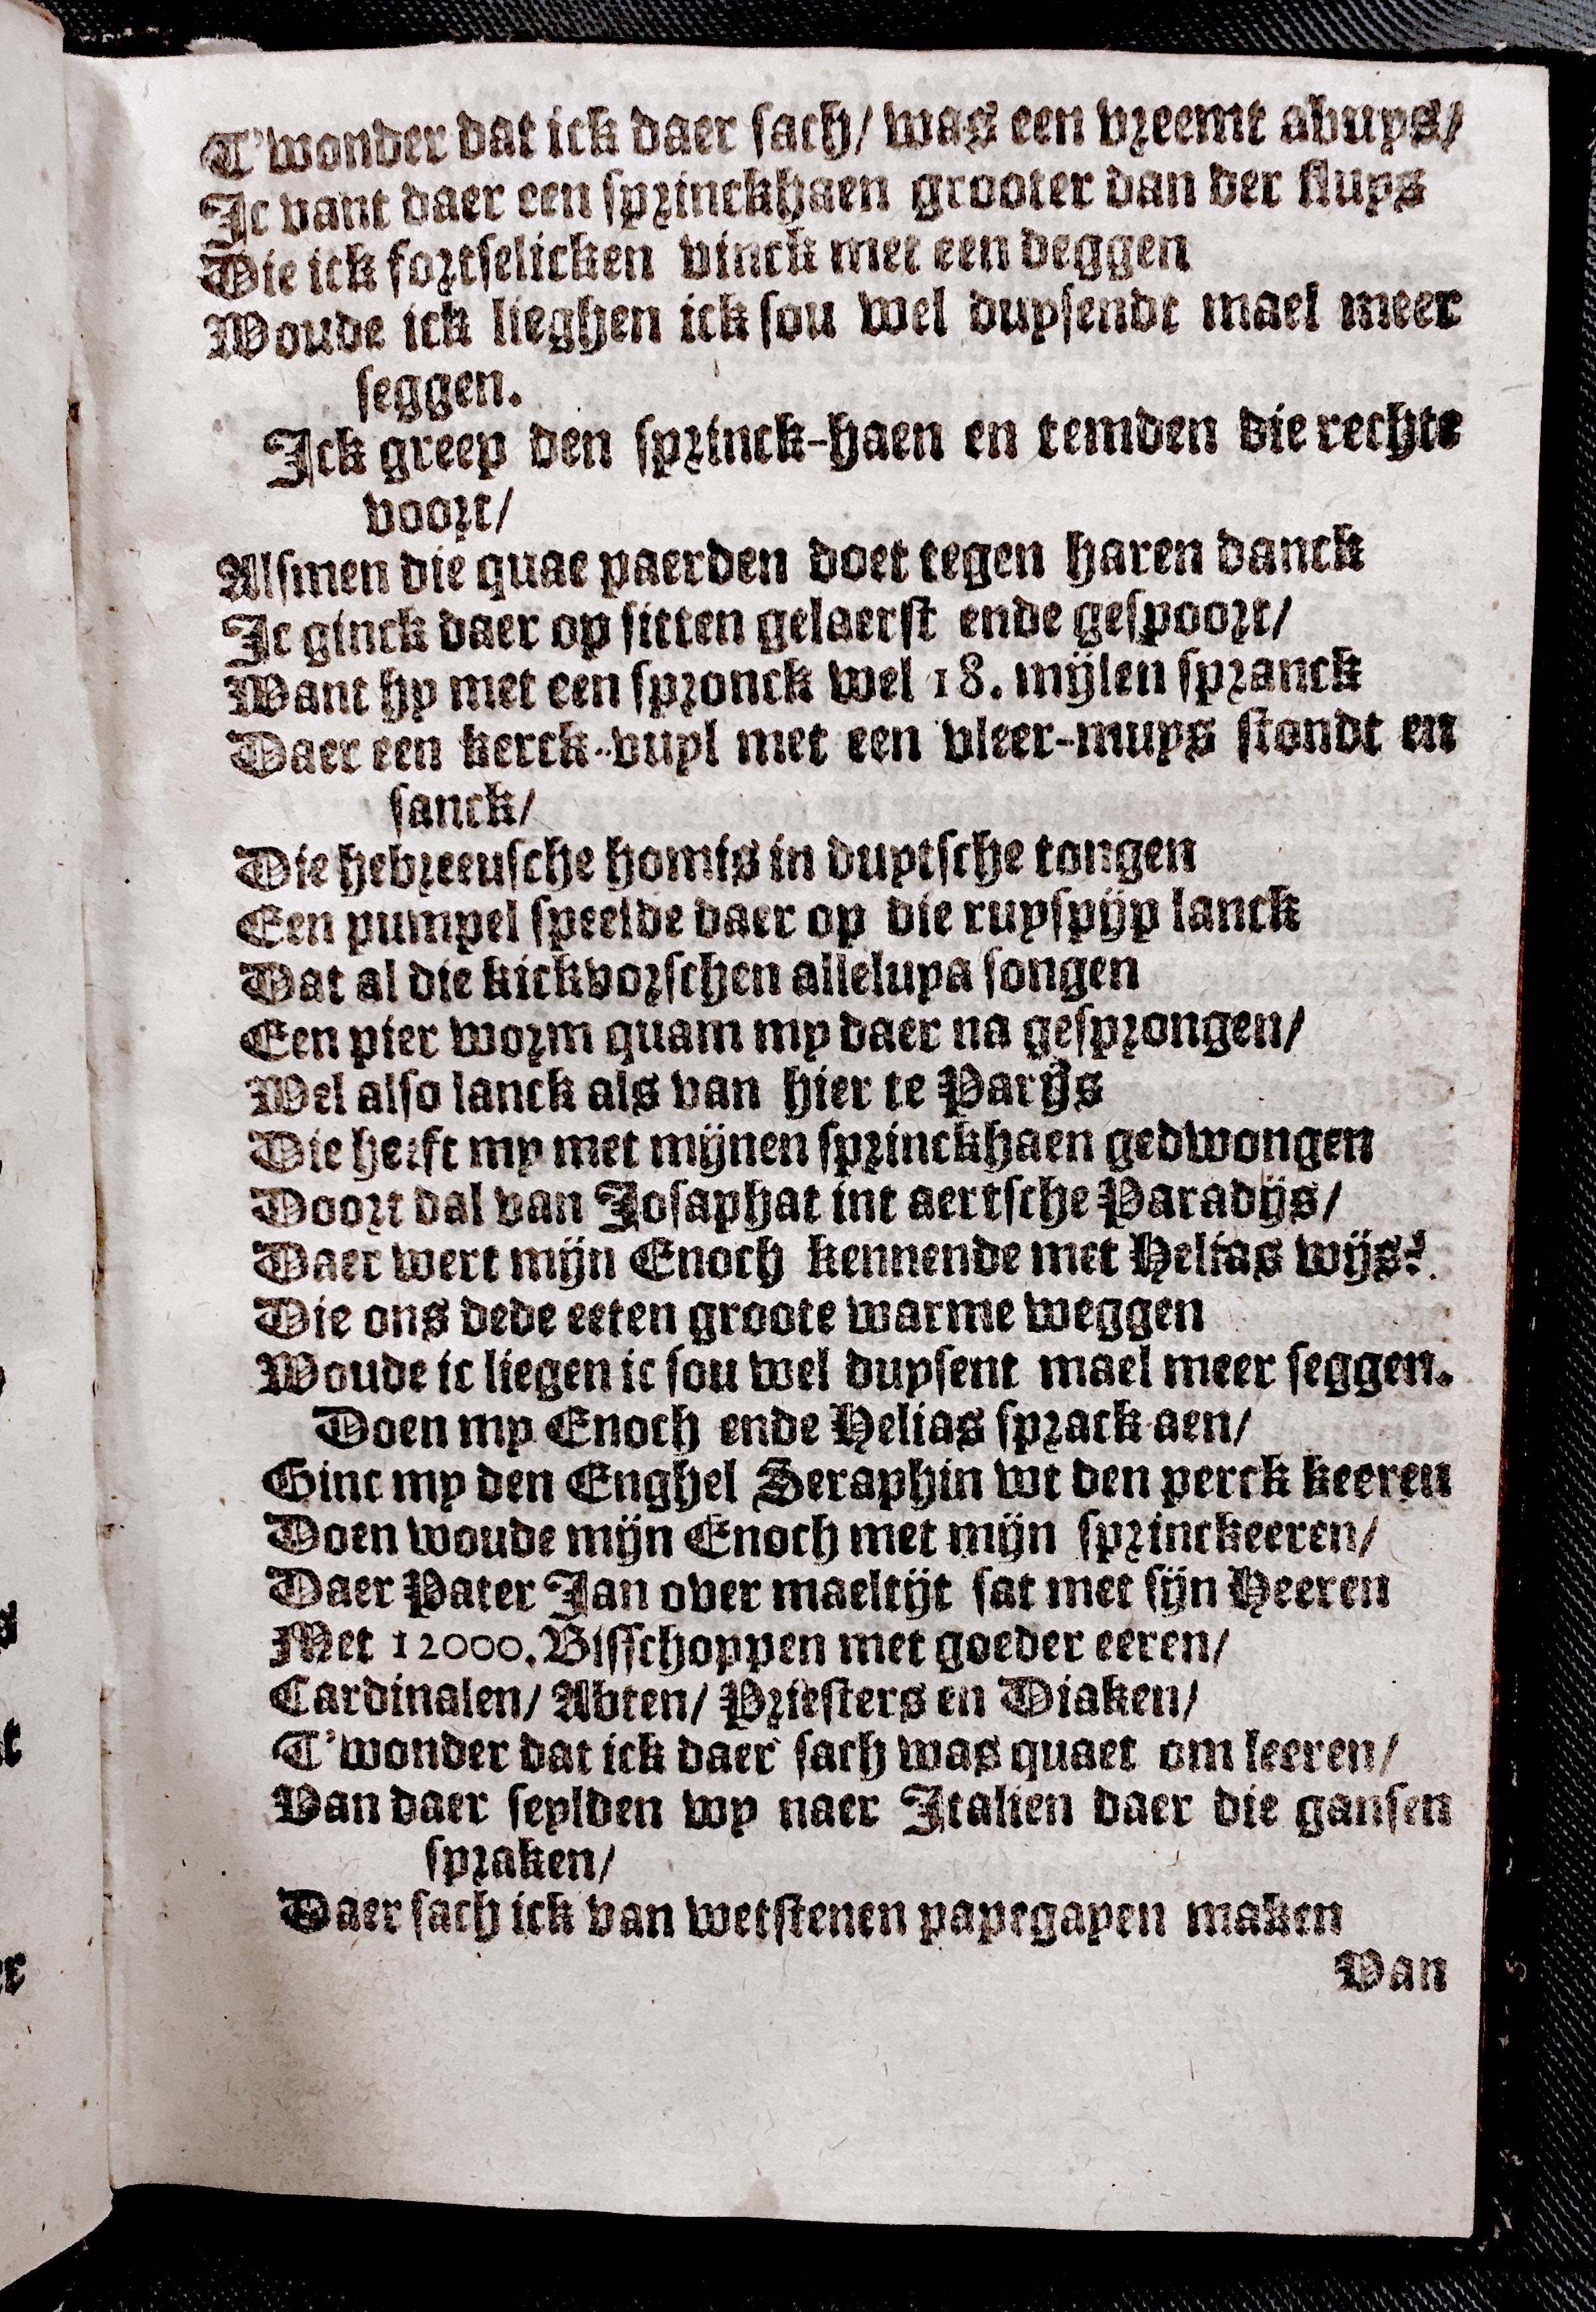 T'wonder dat ick daer sach/ was een vreemt abuys/
Jc vant daer een sprinckhaen grooter dan ver sluys
Die ick fortselicken vinck met een deggen
Woude ick lieghen ick sou wel duysendt mael meer
seggen.
Jck greep den sprinck-haen en temden die rechte
voort/
Alsmen die quae paerden doet tegen haren danck
Jc ginck daer op sitten gelaerst ende gespoort/
Want hy met een spronck wel 18. mijlen spranck
Daer een kerck-vuyl met een vleer-muys stondt en
sanck/
Die hebreeusche homis in duytsche tongen
Een pumpel speelde daer op die ruyspijp lanck
Dat al die kickvorschen alleluya songen
Een pier worm quam my daer na gesprongen/
Wel also lanck als van hier te Parijs
Die heeft my met mijnen sprinckhaen gedwongen
Doort dal van Josaphat int aertsche Paradijs/
Daer wert mijn Enoch kennende met Helias wijs:
Die ons dede eeten groote warme weggen
Woude ic liegen ic sou wel duysent mael meer seggen.
Doen my Enoch ende Helias sprack aen/
Ginc my den Enghel Seraphin wt den perck keeren
Doen woude mijn Enoch met mijn sprinckeeren/
Daer Pater Jan over maeltijt sat met sijn Heeren
Met 12000. Bisschoppen met goeder eeren/
Cardinalen/ Abten/ Priesters en Diaken/
T'wonder dat ick daer sach was quaet om leeren/
Van daer seylden wy naer Jtalien daer die gansen
spraken/
Daer sach ick van wetstenen papegayen maken
Van